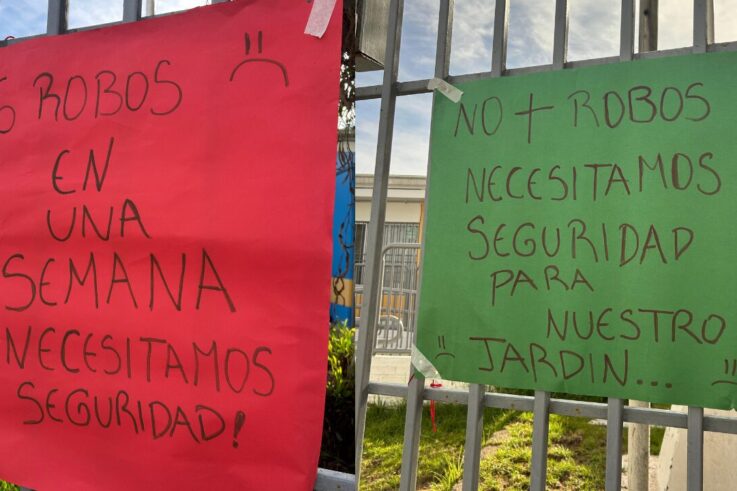 ROBOS
EN
UNA
SEMANA
NECESITAMOS
SEGURIDAD!
NO + ROBOS
NECESITAMOS
SEGURIDAD
PARA
NUESTRO
JARDIN...